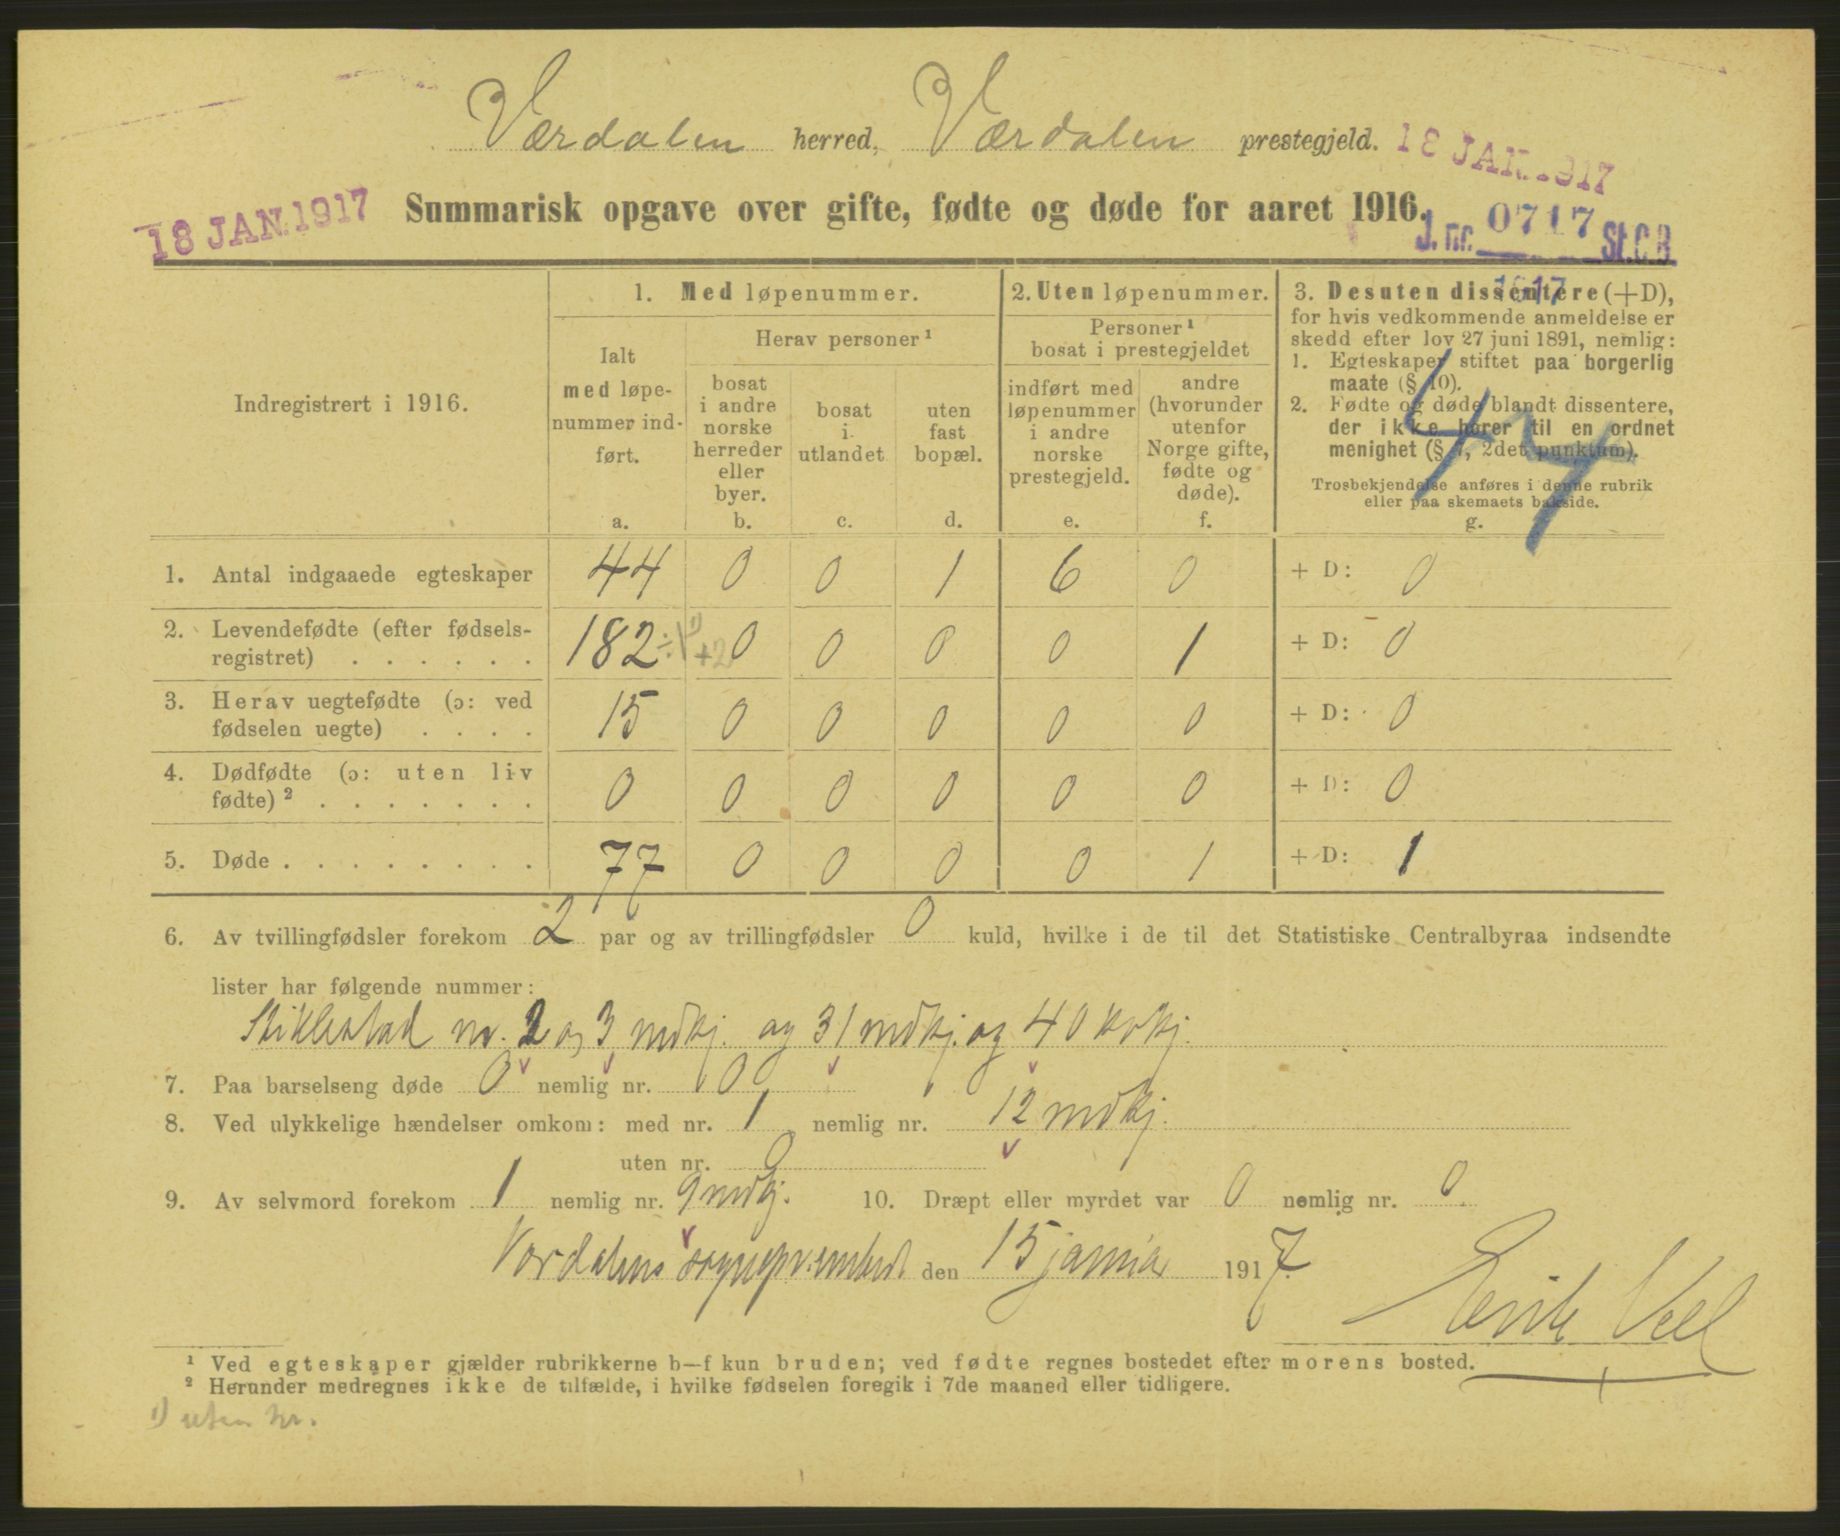 Værdalen herred, Værdalen prestegjeld. 18 JAN. 1917
18 JAN. 1917 Summarisk opgave over gifte, fødte og døde for aaret 1916. J. nr. 0717 St.C.B.
1917
Indregistrert i 1916.
1. Med løpenummer.
Ialt
med løpe-
nummer ind-
ført.
a.
Herav personer ¹
bosat
i andre
norske
herreder
eller
byer.
b.
bosat
i
utlandet
c.
uten
fast
bopæl.
d.
2. Uten løpenummer.
Personer ¹
bosat i prestegjeldet
indført med
løpenummer
i andre
norske
prestegjeld.
e.
andre
(hvorunder
utenfor
Norge gifte,
fødte og
døde).
f.
3. Desuten dissentere (+D),
for hvis vedkommende anmeldelse er
skedd efter lov 27 juni 1891, nemlig:
1. Egteskaper stiftet paa borgerlig
maate (§ 10).
2. Fødte og døde blandt dissentere,
der ikke hører til en ordnet
menighet (§ 7, 2det punktum).
Trosbekjendelse anføres i denne rubrik
eller paa skemaets bakside.
g.
47
1. Antal indgaaede egteskaper 44 0 0 1 6 0 + D: 0
2. Levendefødte (efter fødsels-
registret) . . . . . . 182 ÷1 ¹⁾ +2 0 0 0 0 1 + D: 0
3. Herav uegtefødte (ɔ: ved
fødselen uegte) . . . . 15 0 0 0 0 0 + D: 0
4. Dødfødte (ɔ: uten liv
fødte) ² . . . . . . . 0 0 0 0 0 0 + D: 0
5. Døde . . . . . . . . 77 0 0 0 0 1 + D: 1
6. Av tvillingfødsler forekom 2 par og av trillingfødsler 0 kuld, hvilke i de til det Statistiske Centralbyraa indsendte
lister har følgende nummer:
Stiklestad nr. 2 og 3 mdkj. og 31 mdkj. og 40 kvkj.
7. Paa barselseng døde 0 nemlig nr. 0
8. Ved ulykkelige hændelser omkom: med nr. 1 nemlig nr. 12 mdkj.
uten nr. 0
9. Av selvmord forekom 1 nemlig nr. 9 mdkj. 10. Dræpt eller myrdet var 0 nemlig nr. 0
Værdalens sognepr.embed den 15 januar 1917.
¹ Ved egteskaper gjælder rubrikkerne b—f kun bruden; ved fødte regnes bostedet efter morens bosted.
² Herunder medregnes ikke de tilfælde, i hvilke fødselen foregik i 7de maaned eller tidligere.
¹⁾ uten nr.